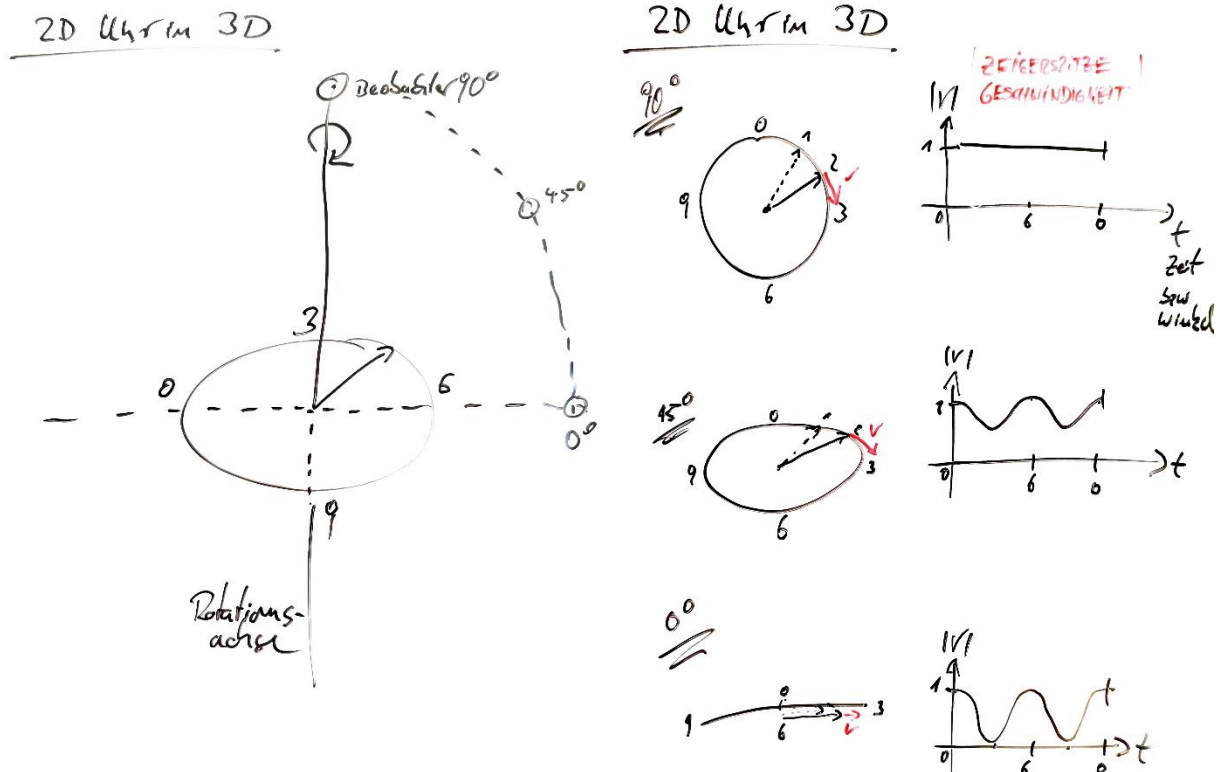 2D Uhr in 3D
Beobachter 90°
45°
3
0
6
0°
9
Rotations-
achse
2D Uhr in 3D
ZEIGERSPITZE
GESCHWINDIGKEIT
90°
0
1
2
v
3
6
9
|v|
1
0
6
0
t
Zeit
bzw
Winkel
45°
0
v
3
6
9
|v|
1
0
6
0
t
0°
0
9
3
6
v
|v|
1
0
6
0
t